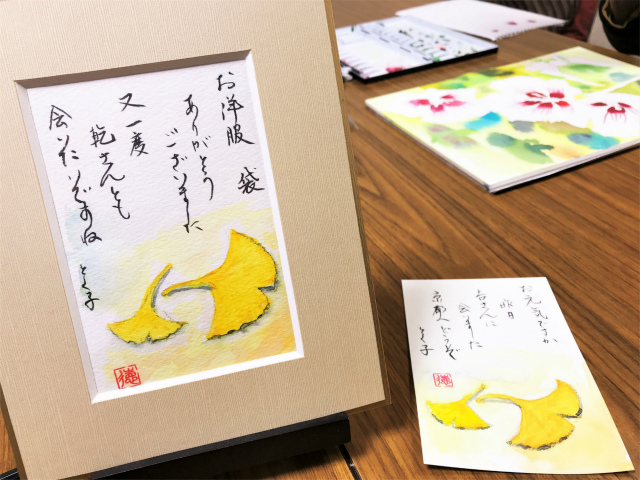 お洋服 袋
ありがとう
ございました
又一度
乾さんとも
会いたいですね
とく子
お元気ですか
昨日
吉さんに
会ました
京都へどうぞ
とく子